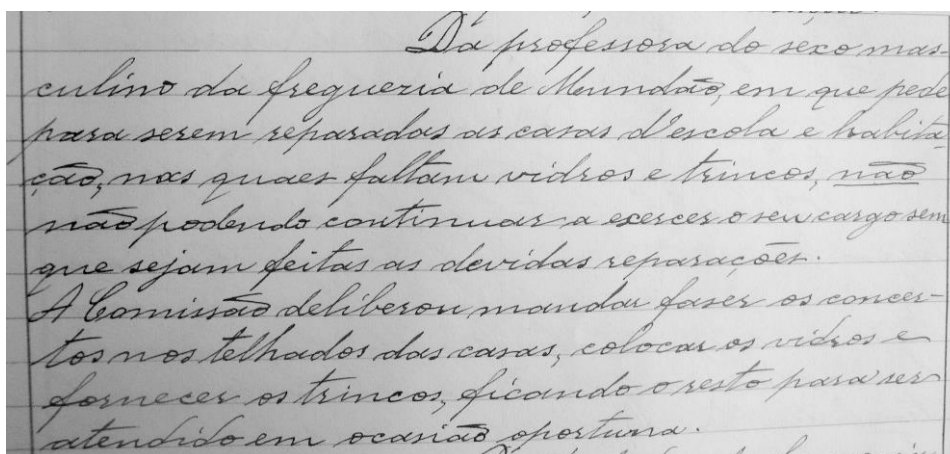 Da professora do sexo mas
culino da freguezia de Mundão, em que pede
para serem reparadas as casas d'escola e habita
ção, nas quaes faltam vidros e trincos, não
não podendo continuar a exercer o seu cargo sem
que sejam feitas as devidas reparações.
A Comissão deliberou mandar faser os concer-
tos nos telhados das casas, colocar os vidros e
fornecer os trincos, ficando o resto para ser
atendido em ocasião oportuna.